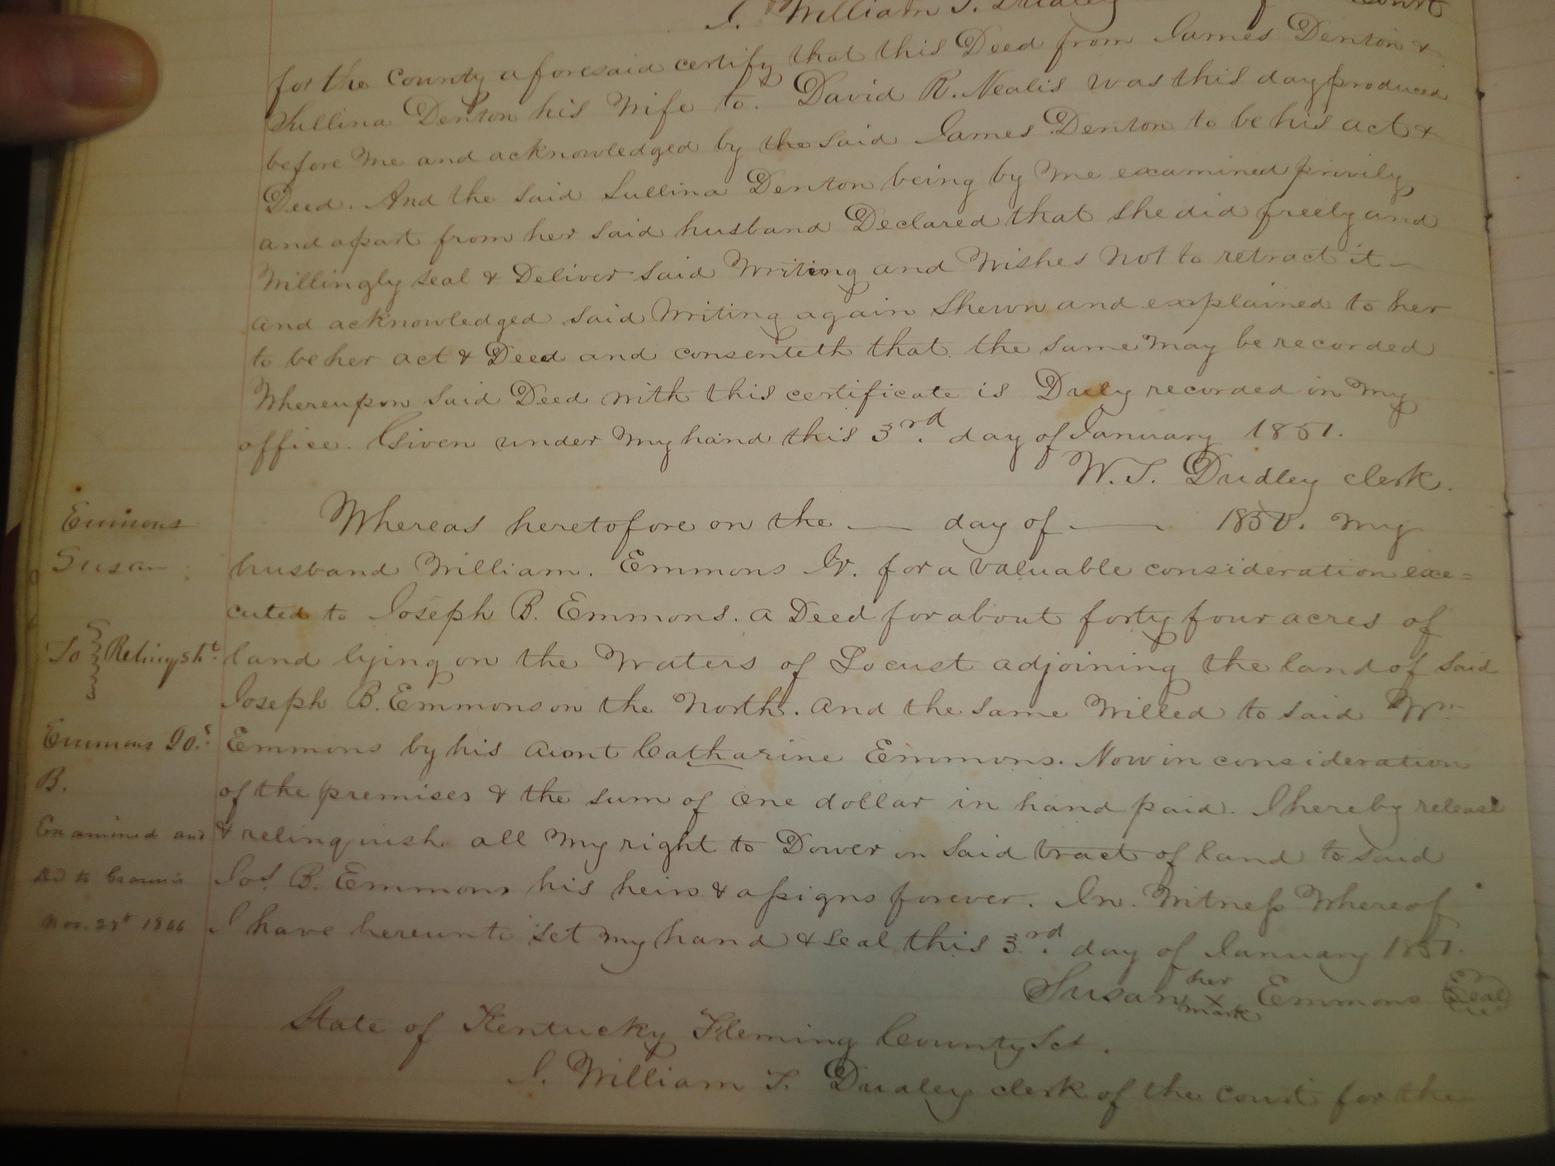 I. William T. Dudley Court
for the County aforesaid certify that this Deed from James Denton &
Sullina Denton his Wife to. David R. Nealis was this day produced
before me and acknowledged by the said James Denton to be his act &
Deed. And the said Sullina Denton being by me examined privily
and apart from her said husband Declared that she did freely and
Willingly seal & Deliver said Writing and Wishes not to retract it —
and acknowledged said Writing again Shewn and explained to her
to be her act & Deed and consenteth that the same may be recorded
Whereupon said Deed with this certificate is Duly recorded in my
office. Given under my hand this 3rd. day of January 1851.
W. T. Dudley clerk.
Emmons
Susan
To Relinqsht.
Emmons Jos.
B.
Examined and
Nov. 1866
Whereas heretofore on the —— day of —— 1850. my
husband William. Emmons Jr. for a valuable consideration exe=
cuted to Joseph B. Emmons. a Deed for about forty four acres of
land lying on the Waters of Locust adjoining the land of said
Joseph B. Emmons on the North. And the same Willed to said Wm
Emmons by his aunt Catharine Emmons. Now in consideration
of the premises & the sum of one dollar in hand paid. I hereby release
& relinquish all my right to Dower in said tract of land to said
Jos. B. Emmons his heirs & assigns forever. In. Witness Whereof
I have hereunto set my hand & seal this 3rd. day of January 1851.
Susan her X mark Emmons Seal
State of Kentucky Fleming County Sct.
I. William T. Dudley clerk of the court for the